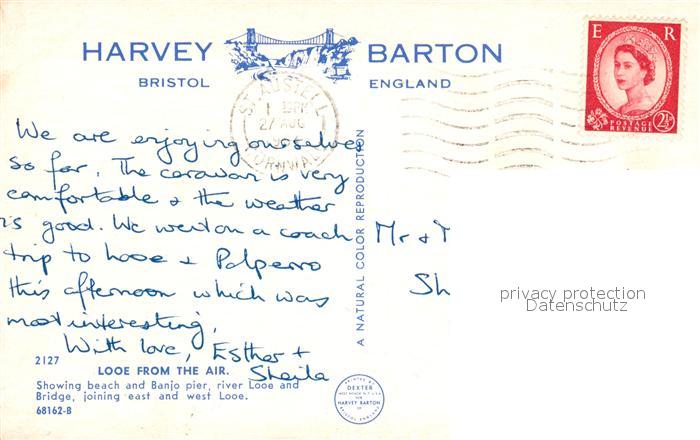 HARVEY BARTON
BRISTOL ENGLAND
E R
POSTAGE
REVENUE
2½D
ST. AUSTELL
27 AUG
CORNWALL
We are enjoying ourselves
so far. The caravan is very
comfortable & the weather
is good. We went on a coach
trip to Looe & Polperro
this afternoon which was
most interesting.
With love, Esther &
Sheila
Mr & 
Sh
A NATURAL COLOR REPRODUCTION
privacy protection
Datenschutz
2127
LOOE FROM THE AIR.
Showing beach and Banjo pier, river Looe and
Bridge, joining east and west Looe.
68162-B
PRINTED BY
DEXTER
FOR
HARVEY BARTON
OF
BRISTOL ENGLAND